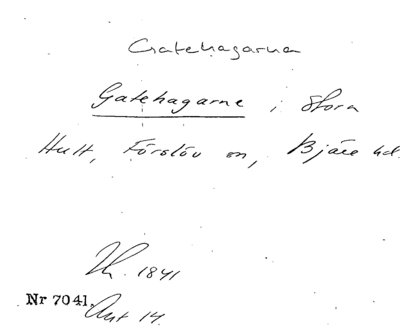 Gatehagarna
Gatehagarne i Stora
Hult, Förslöv sn, Bjäre hd.
Th. 1841
Nr 7041.
Akt 14.